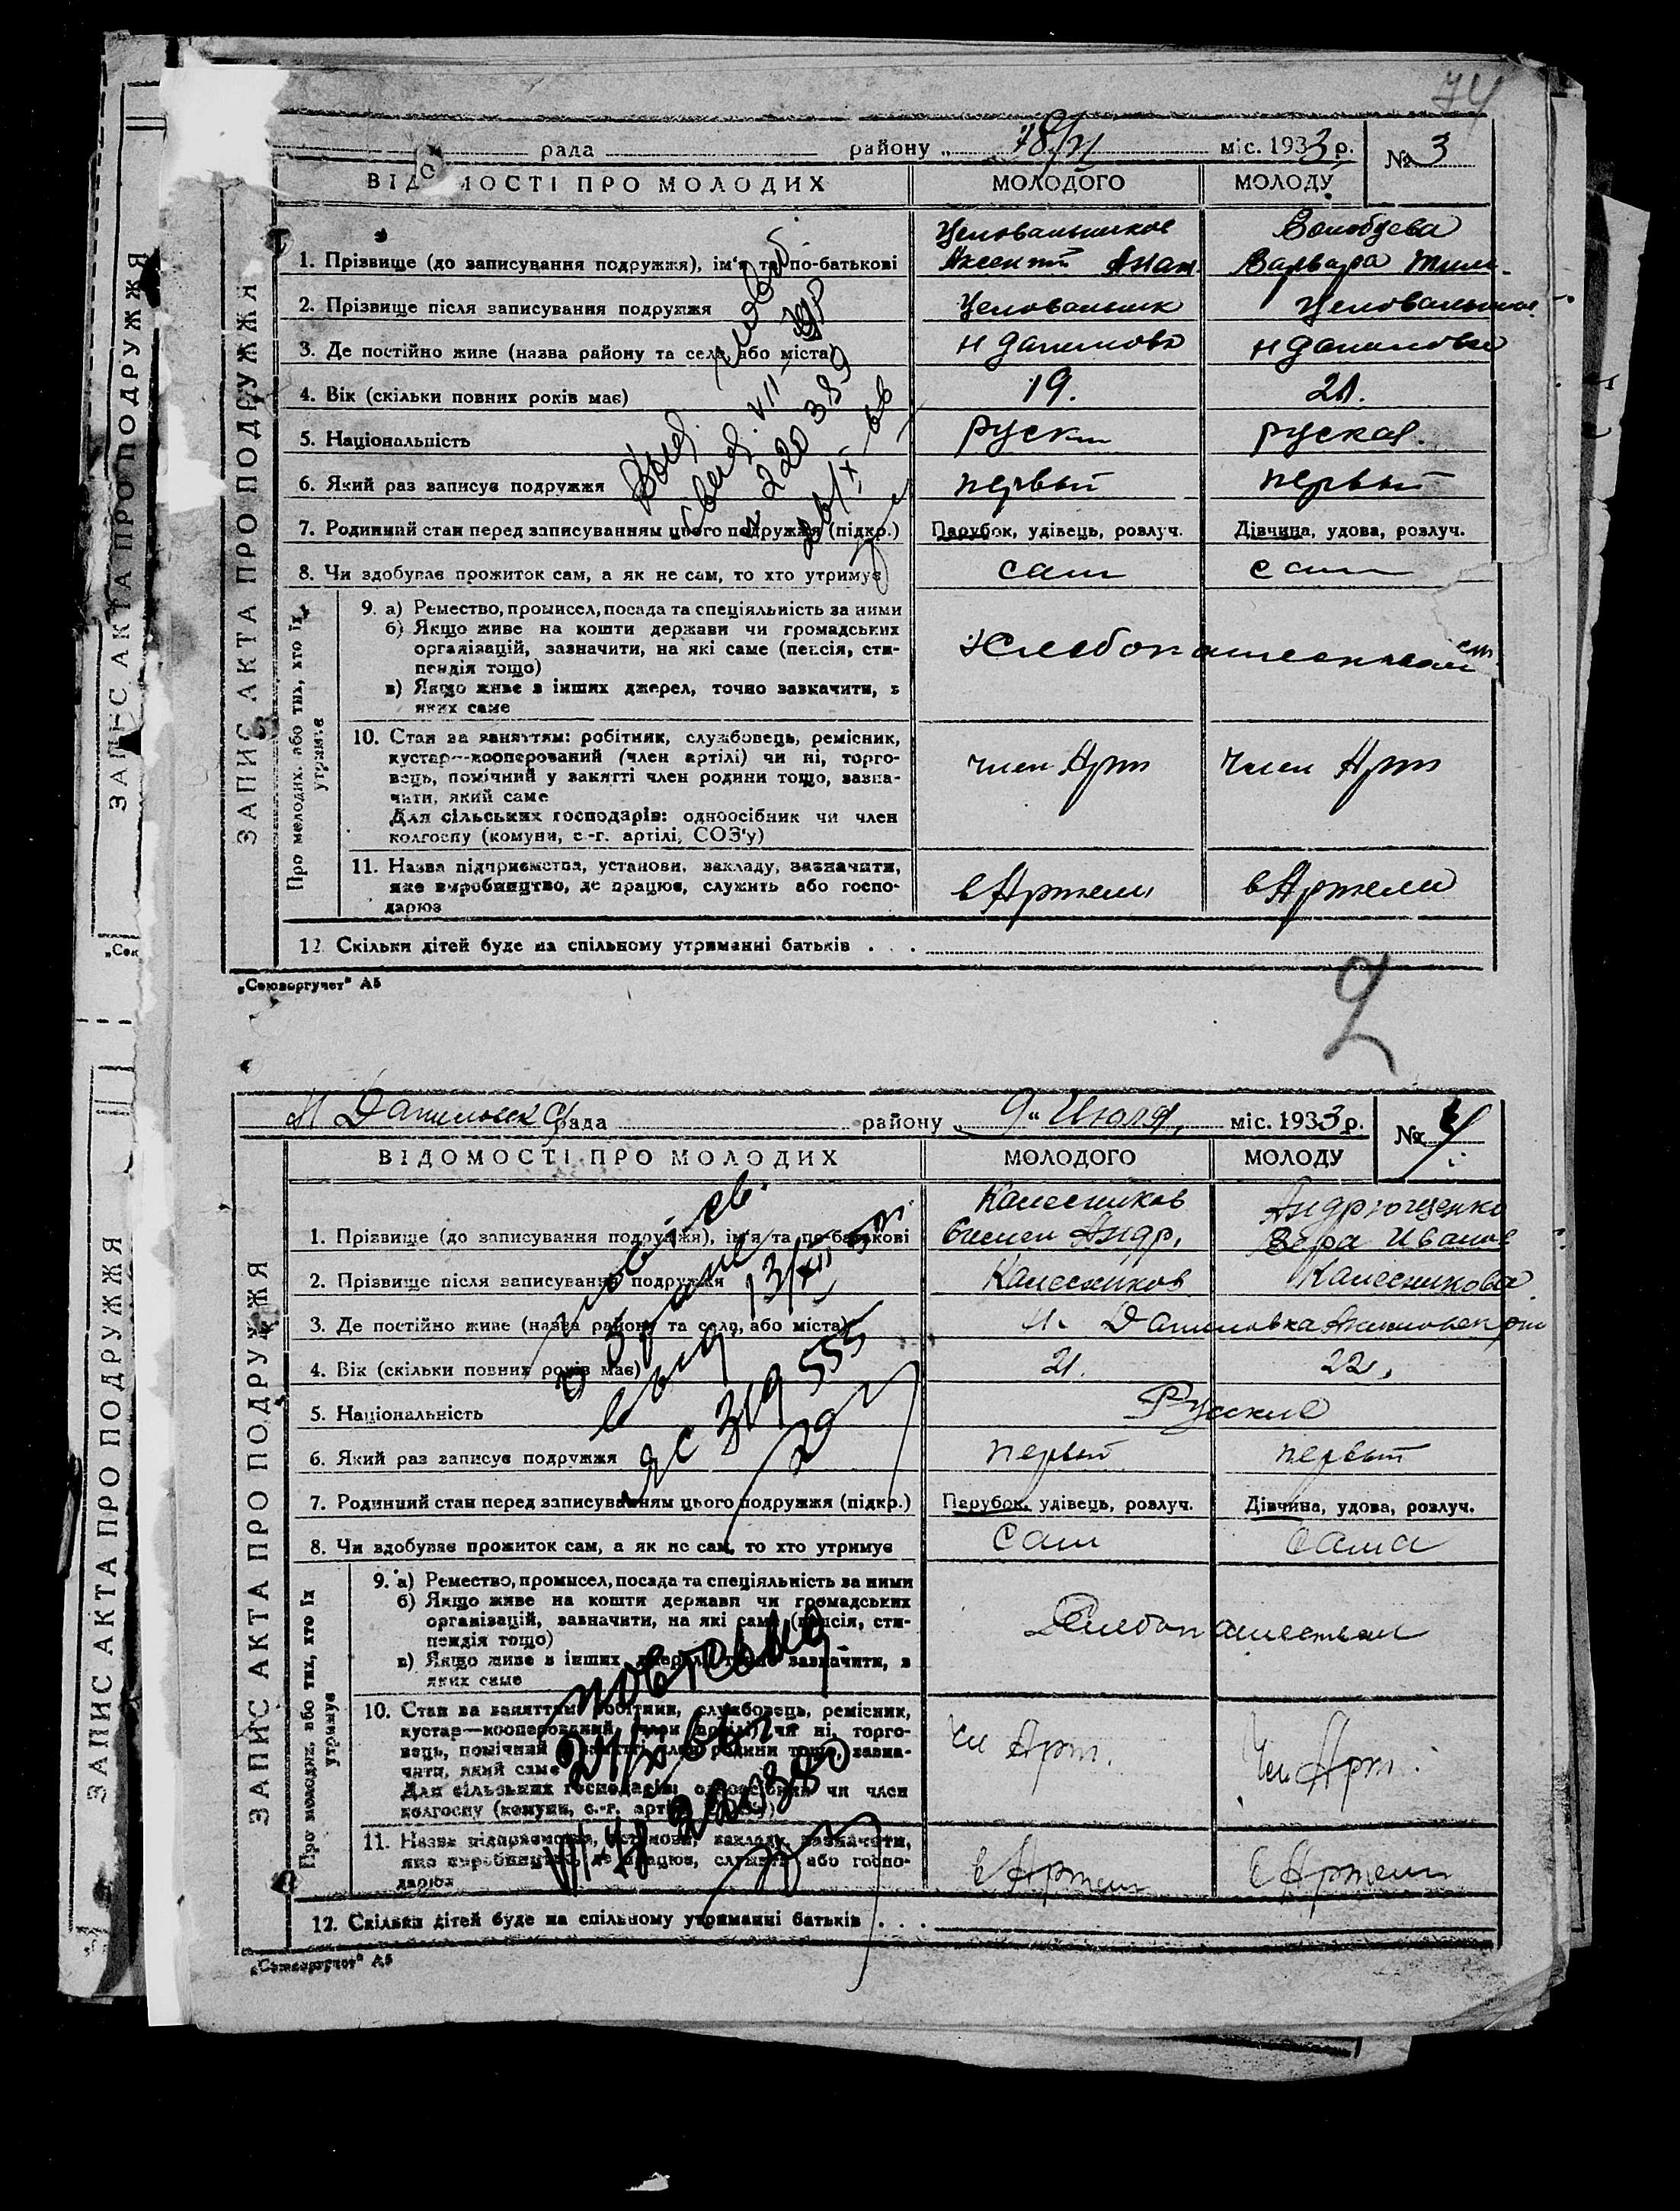 74
рада району „ міс. 1933 р. № 3
ВІДОМОСТІ ПРО МОЛОДИХ МОЛОДОГО МОЛОДУ
Целовальников Волобуева
1. Прізвище (до записування подружжя), ім'я та по-батькові Аксентий Варвара
2. Прізвище після записування подружжя Целовальник Целовальников
3. Де постійно живе (назва району та села, або міста) Н Даниловка Н Даниловка
4. Вік (скільки повних років має) 19. 21.
5. Національність Руский руская.
6. Який раз записує подружжя первый первый
7. Родинний стан перед записуванням цього подружжя (підкр.) Парубок, удівець, розлуч. Дівчина, удова, розлуч.
8. Чи здобуває прожиток сам, а як не сам, то хто утримує сам сам
9. а) Ремество, промисел, посада та спеціяльність за ними
б) Якщо живе на кошти держави чи громадських
організацій, зазначити, на які саме (пенсія, сти-
пендія тощо)
Хлебопашеством
в) Якщо живе в інших джерел, точно зазначити, з
яких саме
10. Стан за заняттям: робітник, службовець, ремісник,
кустар—кооперований (член артілі) чи ні, торго-
вець, помічний у занятті член родини тощо, зазна-
чити, який саме
член Арт член Арт
Для сільських господарів: одноосібник чи член
колгоспу (комуни, с.-г. артілі, СОЗ'у)
11. Назва підприємства, установи, закладу, зазначити,
яке виробництво, де працює, служить або госпо-
дарює
в Артели в Артели
12. Скільки дітей буде на спільному утриманні батьків . . .
ЗАПИС АКТА ПРО ПОДРУЖЖЯ
Про молодих, або тих, хто їх
утримує
„Союзоргучет" А5
2
рада району „ 9 " Июля, міс. 1933 р. № 4
ВІДОМОСТІ ПРО МОЛОДИХ МОЛОДОГО МОЛОДУ
Калесников Андрющенко
1. Прізвище (до записування подружжя), ім'я та по-батькові Семен Андр. Вера Иванов
2. Прізвище після записування подружжя Калесников Калесникова
3. Де постійно живе (назва району та села, або міста) Н. Даниловка
4. Вік (скільки повних років має) 21. 22.
5. Національність Руские
6. Який раз записує подружжя первый первый
7. Родинний стан перед записуванням цього подружжя (підкр.) Парубок, удівець, розлуч. Дівчина, удова, розлуч.
8. Чи здобуває прожиток сам, а як не сам, то хто утримує сам сама
9. а) Ремество, промисел, посада та спеціяльність за ними
б) Якщо живе на кошти держави чи громадських
організацій, зазначити, на які саме (пенсія, сти-
пендія тощо)
Хлебопашеством
в) Якщо живе в інших джерел, точно зазначити, з
яких саме
10. Стан за заняттям: робітник, службовець, ремісник,
кустар—кооперований (член артілі) чи ні, торго-
вець, помічний у занятті член родини тощо, зазна-
чити, який саме
чл Арт. чл Арт.
Для сільських господарів: одноосібник чи член
колгоспу (комуни, с.-г. артілі, СОЗ'у)
11. Назва підприємства, установи, закладу, зазначити,
яке виробництво, де працює, служить або госпо-
дарює
в Артели в Артели
12. Скільки дітей буде на спільному утриманні батьків . . .
ЗАПИС АКТА ПРО ПОДРУЖЖЯ
Про молодих, або тих, хто їх
утримує
„Союзоргучет" А5
ЗАПИС АКТА ПРО ПОДРУЖЖЯ
ЗАПИС АКТА ПРО ПОДРУЖЖЯ